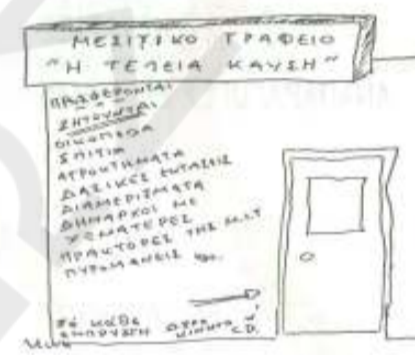 ΜΕΣΙΤΙΚΟ ΓΡΑΦΕΙΟ
"Η ΤΕΛΕΙΑ ΚΑΥΣΗ"
ΠΡΟΣΦΕΡΟΝΤΑΙ
ΖΗΤΟΥΝΤΑΙ
ΟΙΚΟΠΕΔΑ
ΣΠΙΤΙΑ
ΑΓΡΟΚΤΗΜΑΤΑ
ΔΑΣΙΚΕΣ ΕΚΤΑΣΕΙΣ
ΔΙΑΜΕΡΙΣΜΑΤΑ
ΔΗΜΑΡΧΟΙ ΜΕ
ΧΩΜΑΤΕΡΕΣ
ΠΡΑΚΤΟΡΕΣ ΤΗΣ Μ.Ι.Τ
ΠΥΡΟΜΑΝΕΙΣ
ΣΕ ΚΑΘΕ
ΔΩΡΟ
C.D.